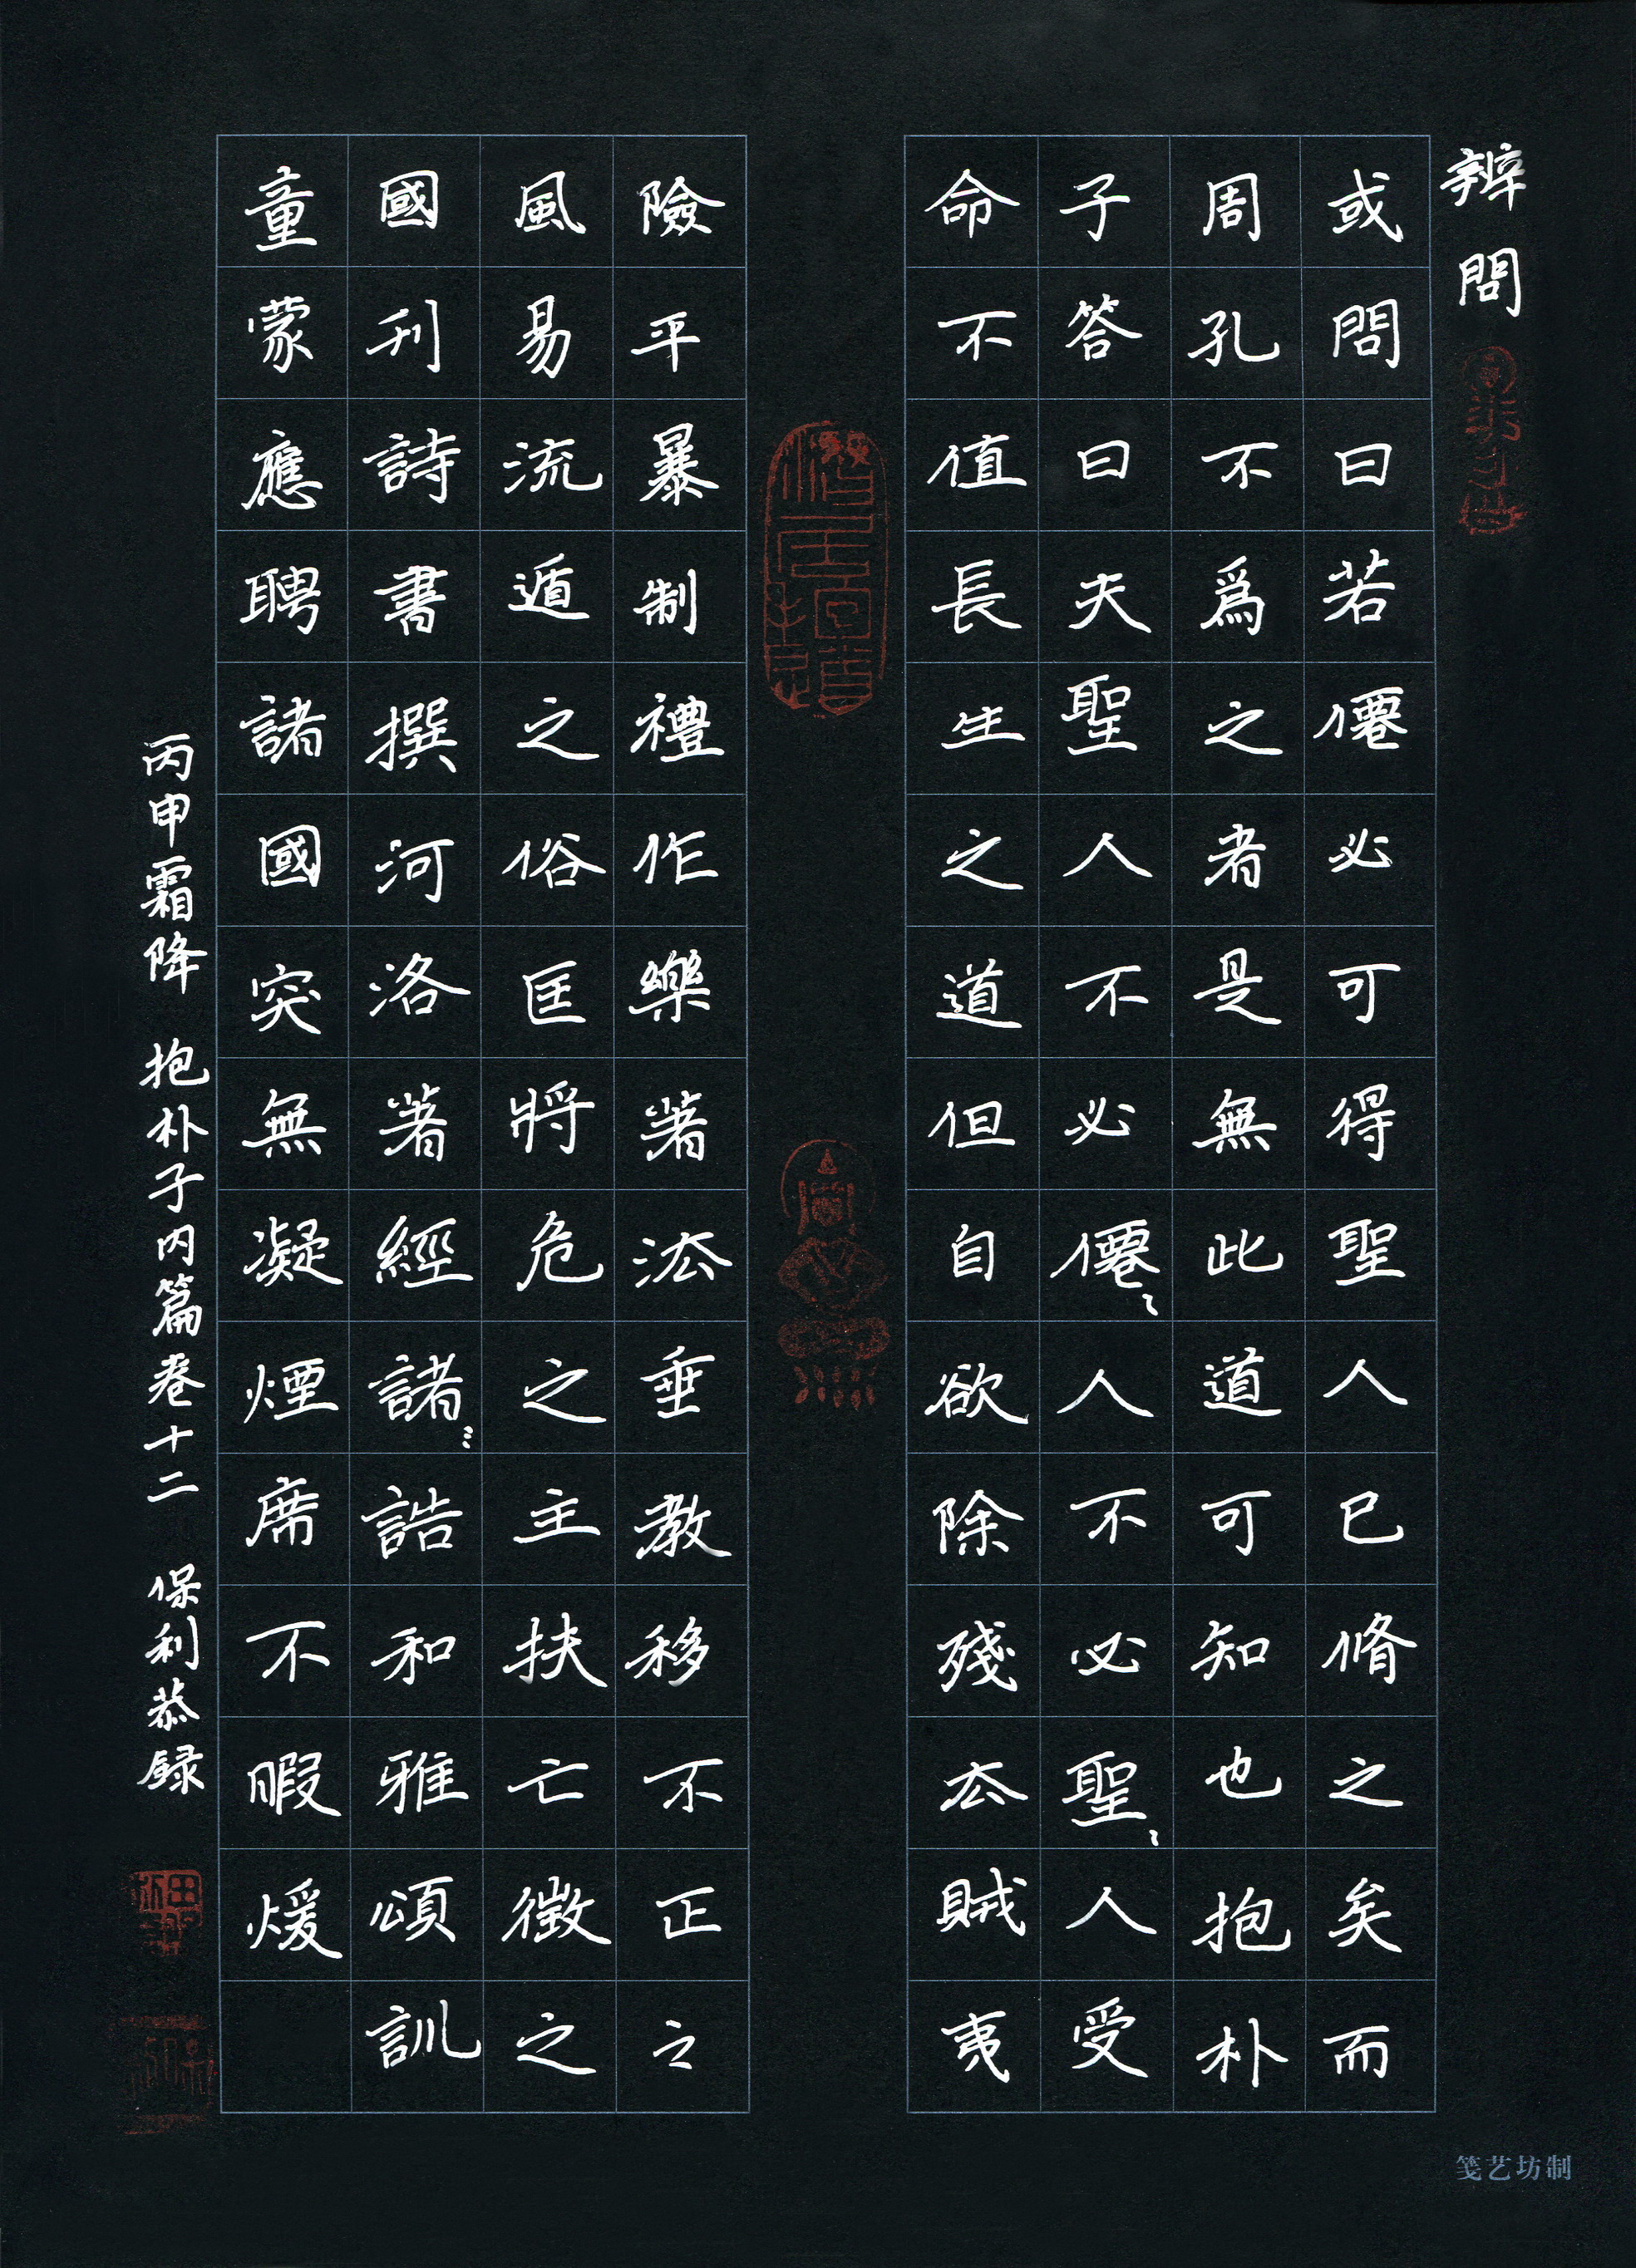 辨問
或問曰若僊必可得聖人已脩之矣而
周孔不爲之者是無此道可知也抱朴
子答曰夫聖人不必僊〻人不必聖〻人受
命不值長生之道但自欲除殘去賊夷
險平暴制禮作樂著法垂教移不正之
風易流遁之俗匡將危之主扶亡徵之
國刊詩書撰河洛著經諸誥和雅頌訓
童蒙應聘諸國突無凝煙席不暇煖
丙申霜降 抱朴子内篇卷十二 保利恭録
笺艺坊制